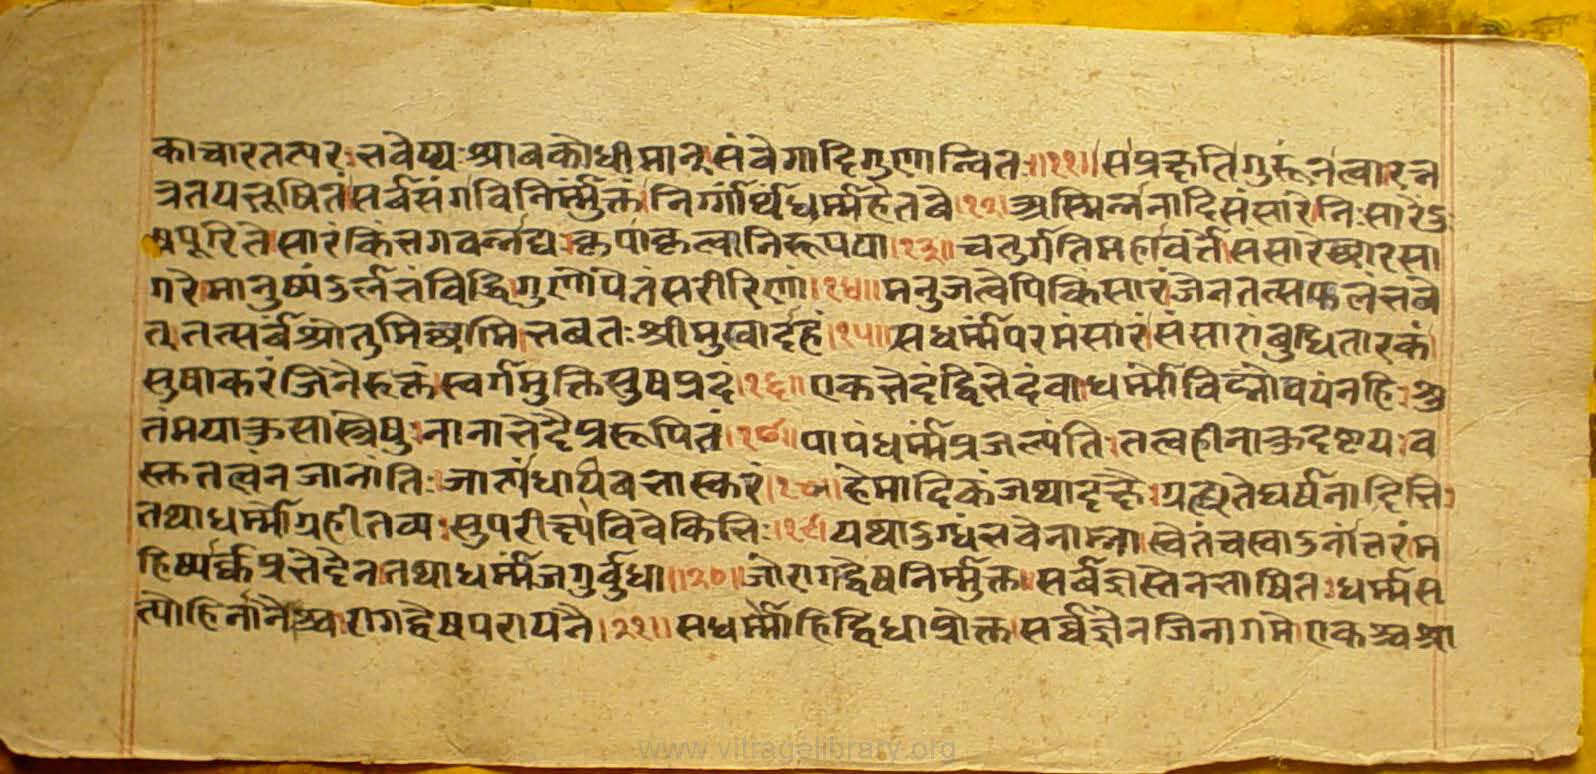 काचारतत्परः भवेय्यः श्रावकोधीमान् संवेगादिगुणान्वितः ॥११॥ सप्रकृतिगुरूंनत्वारत्न
त्रतयभूषितं सर्वसंगविनिर्म्मुक्तं निर्ग्गंर्थधर्म्महेतवे ।१२। अस्मिर्न्ननादिसंसारेनिःसारेदुः
षपूरिते सारंकिंभगवर्न्नद्यः कृपांकृत्वानिरूपया ।१३॥ चतुर्गतिमहावर्ते संसारेष्यारसा
गरे मानुष्यंदुर्लभंविद्धि गुणोपेतंसरीरिणां ।१४॥ मनुजत्वेपिकिंसारं जैनतत्सफलंभवे
त् तत्सर्वश्रोतुमिच्छामि भवतः श्रीमुखार्दहं ।१५॥ सधर्म्मपरमंसारं संसारांबुधितारकं
सुषाकरंजिनैरूक्तं स्वर्गमुक्तिसुषप्रदं ।१६॥ एकभेदंद्विभेदंवा धर्म्मोविद्मोवयंनहि श्रु
तंमयाकुसास्त्रेषु नानाभेदैप्ररूपितं ।१७॥ पापंधर्म्मप्रजल्पंति तत्वहीनाकुदृष्टयः व
स्तुतत्वंनजानांति जात्यंधायैवभास्करं ।१८। हेमादिकंजथादक्षैः ग्रत्द्यतेघर्षनादिभिः
तथाधर्म्मोग्रहीतव्यः सुपरीक्ष्यविवेकिभिः ।१९। यथादुग्धंभवेनाम्ना स्वेतंचस्वादुनांतरंम
हिष्यर्क्कप्रभेदेन तथाधर्म्मंजगुर्वुधा ॥२०॥ जोरागद्वेषनिर्म्मुक्त सर्वज्ञस्तेनभाषितः धर्म्मस
त्योहिर्नानैश्च रागद्वेषपरायनै ।२१॥ सधर्म्मोहिद्विधाप्रोक्त सर्वज्ञेनजिनागमे एकश्चश्रा
www.vitragelibrary.org